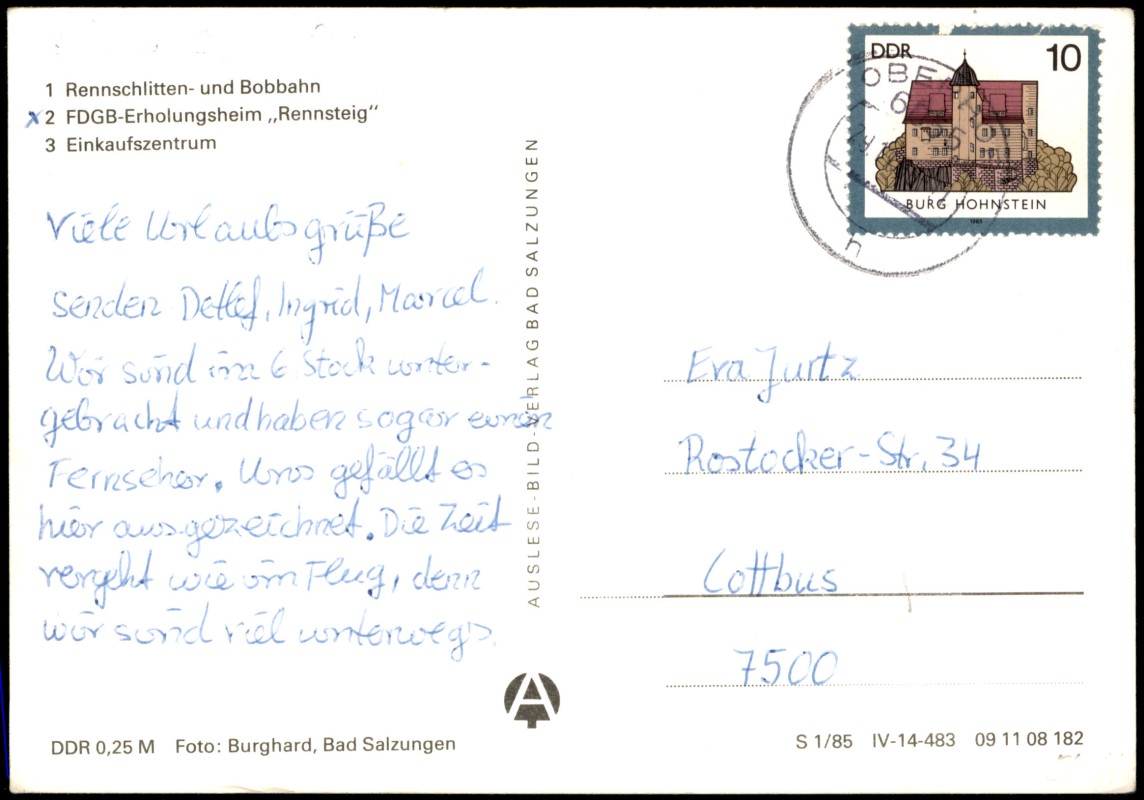 1 Rennschlitten- und Bobbahn
x 2 FDGB-Erholungsheim „Rennsteig“
3 Einkaufszentrum
Viele Urlaubsgrüße
senden Detlef, Ingrid, Marcel.
Wir sind im 6. Stock unter-
gebracht und haben sogar einen
Fernseher. Uns gefällt es
hier ausgezeichnet. Die Zeit
vergeht wie im Flug, denn
wir sind viel unterwegs.
DDR 0,25 M Foto: Burghard, Bad Salzungen
AUSLESE-BILD-VERLAG BAD SALZUNGEN
A
DDR 10
BURG HOHNSTEIN
1985
h
Eva Jurtz
Rostocker-Str. 34
Cottbus
7500
S 1/85 IV-14-483 09 11 08 182